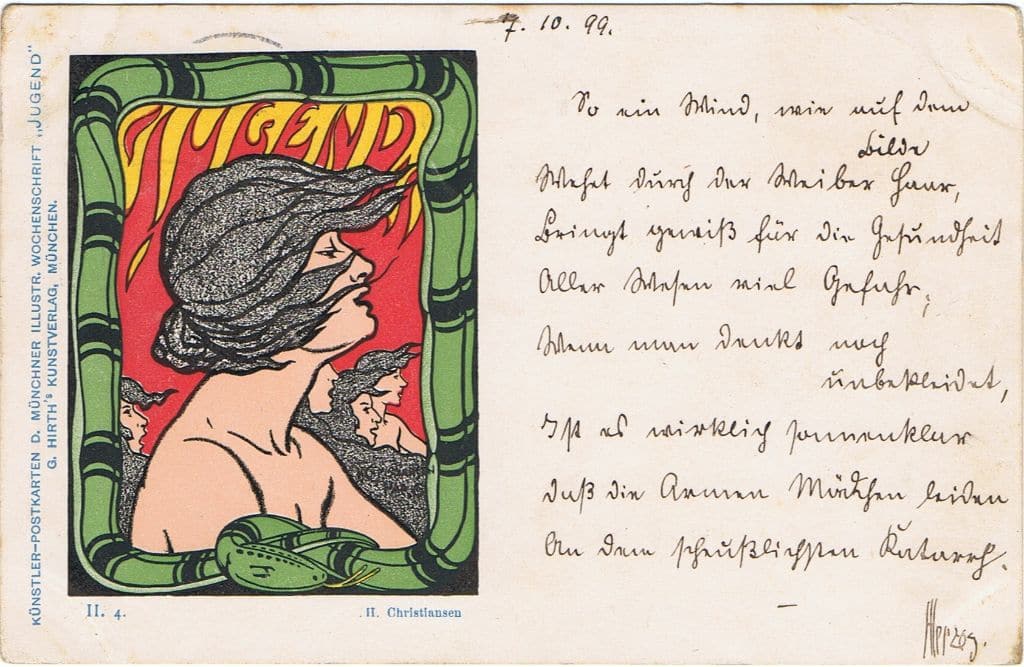 KÜNSTLER-POSTKARTEN D. MÜNCHNER ILLUSTR. WOCHENSCHRIFT „JUGEND"
G. HIRTH's KUNSTVERLAG, MÜNCHEN.
JUGEND
II. 4.
H. Christiansen
7. 10. 99.
So ein Wind, wie auf dem
Bilde
Wehet durch der Weiber Haar,
Bringt gewiß für die Gesundheit
Aller Wesen viel Gefahr,
Wenn man denkt noch
unbekleidet,
Ist es wirklich sonnenklar
daß die Armen Mädchen leiden
An dem scheußlichsten Katarrh.
Herzog.